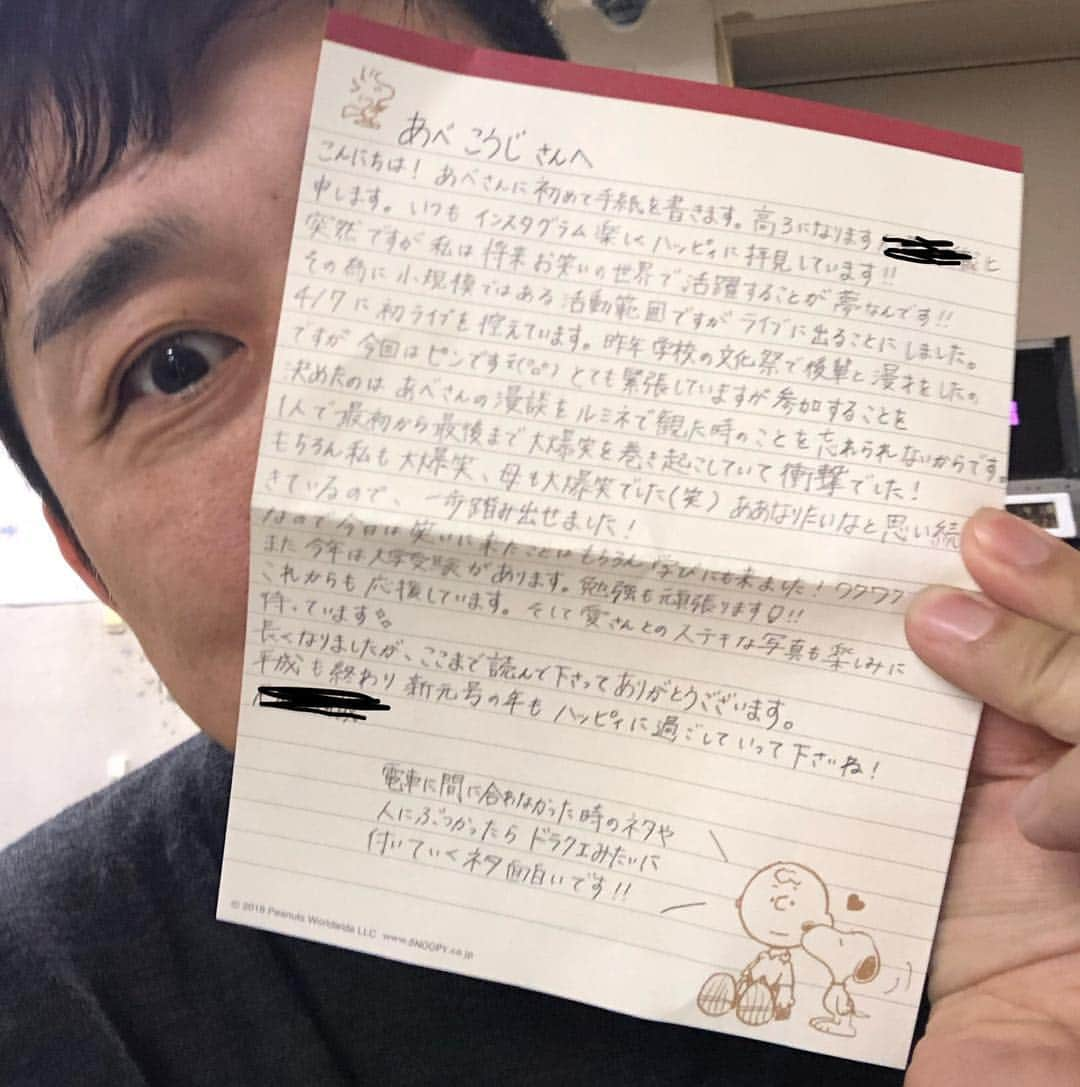 あべ こうじ さんへ
こんにちは! あべさんに初めて手紙を書きます。高3になります
と
申します。いつも インスタグラム 楽しく ハッピィに 拝見しています!!
突然ですが 私は 将来 お笑いの世界で 活躍することが 夢なんです!!
その為に 小規模ではある 活動範囲ですが ライブに出ることに しました。
4/7 に 初ライブを 控えています。昨年 学校の文化祭で 後輩と 漫才をしたの
ですが 今回は ピンです とても緊張していますが 参加することを
決めたのは あべさんの 漫談を ルミネで 観た時のことを 忘れられないからです。
1人で 最初から最後まで 大爆笑を 巻き起こしていて 衝撃でした!
もちろん 私も 大爆笑、母も大爆笑でした(笑) ああなりたいなと 思い続
きているので、一歩踏み出せました!
なので 今日は 笑いに来たことは もちろん 学びにも来ました! ワクワク
また 今年は 大学受験が あります。勉強も頑張ります♡!!
これからも 応援しています。そして 愛さんとの ステキな 写真も 楽しみに
待っています。
長くなりましたが、ここまで 読んで 下さって ありがとうございます。
平成も 終わり 新元号の年も ハッピィに 過ごしていって 下さいね!
電車に間に合わなかった時のネタや
人にぶつかったら ドラクエみたいに
付いていくネタ 面白いです!!
© 2018 Peanuts Worldwide LLC www.SNOOPY.co.jp